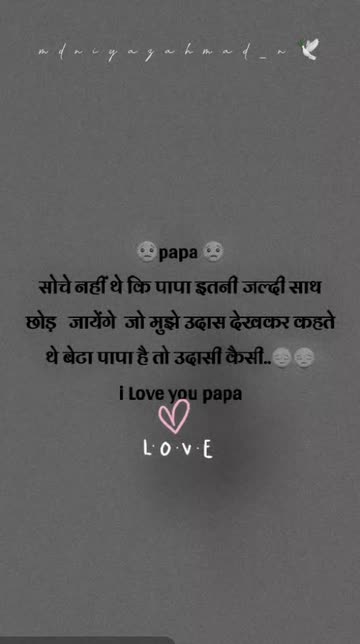 mdniyazahmad_n 🕊️
😢papa 😢
सोचे नहीं थे कि पापा इतनी जल्दी साथ
छोड़ जायेंगे जो मुझे उदास देखकर कहते
थे बेटा पापा है तो उदासी कैसी..😔😔
i Love you papa
L·O·V·E